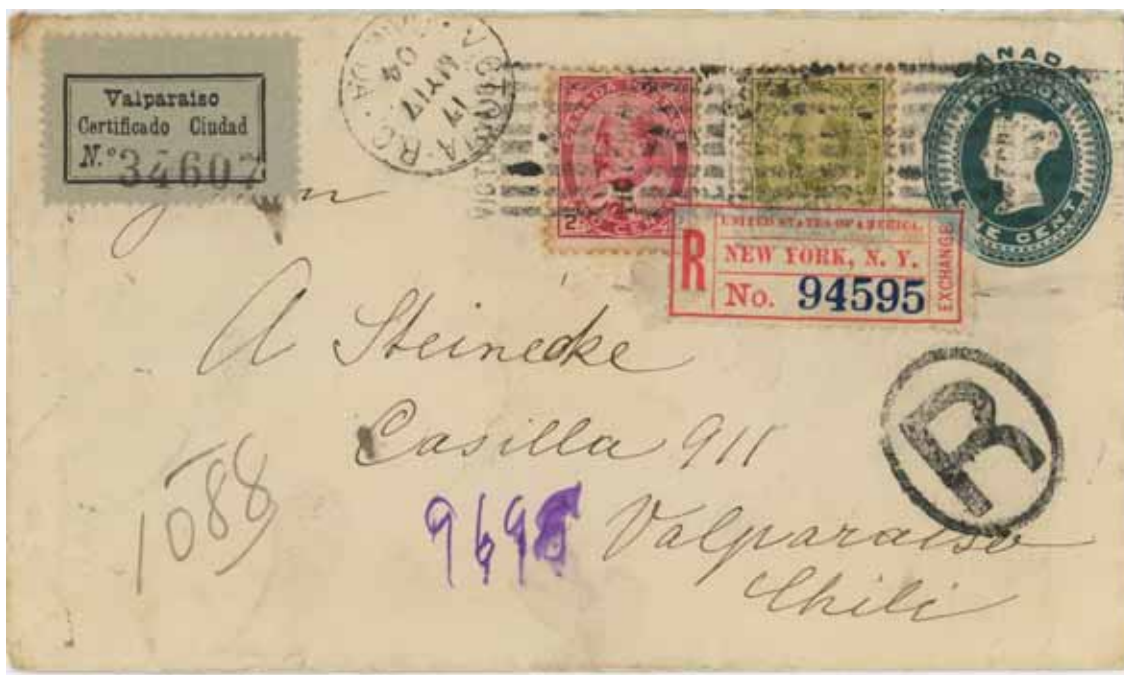 Valparaiso
Certificado Ciudad
N.º 34607
VICTORIA B.C.
17
MY 17
04
CANADA
CANADA POSTAGE
ONE CENT
2
UNITED STATES OF AMERICA.
R
NEW YORK, N. Y.
No. 94595
EXCHANGE
A Steinecke
Casilla 911
Valparaiso
Chili
1088
9698
R